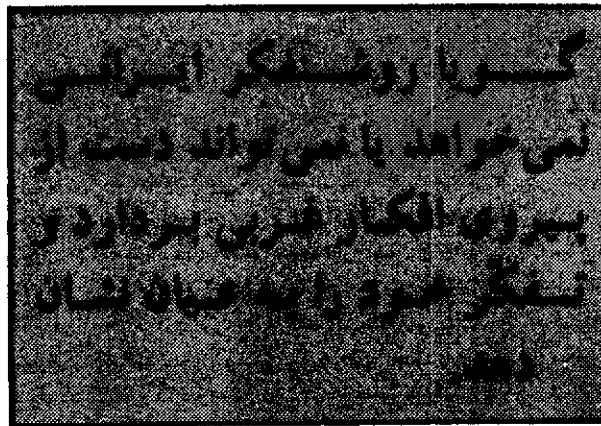 گویا روشنفکر ایرانی
نمی‌خواهد یا نمی‌تواند دست از
پیروی افکار غربی بردارد و
تفکر خود را به جهان نشان
دهد.